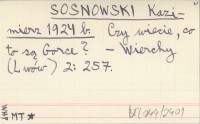 SOSNOWSKI Kazi-
mierz 1924 b. Czy wiecie, co
to są Gorce? - Wierchy
(Lwów) 2: 257.
WHP MT *